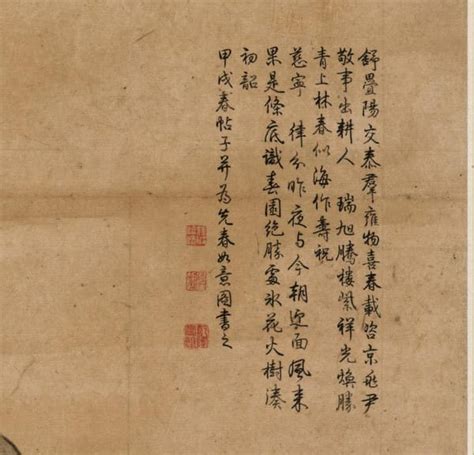 舒疊陽交泰羣雍物喜春載咨京兆尹
敬事出耕人 瑞旭騰樓紫祥光煥勝
青上林春似海作壽祝
慈寧 律分昨夜与今朝迎面風来
果是條底識春園絶勝處氷花火樹湊
初韶
甲戌春帖子并為先春如意圖書之